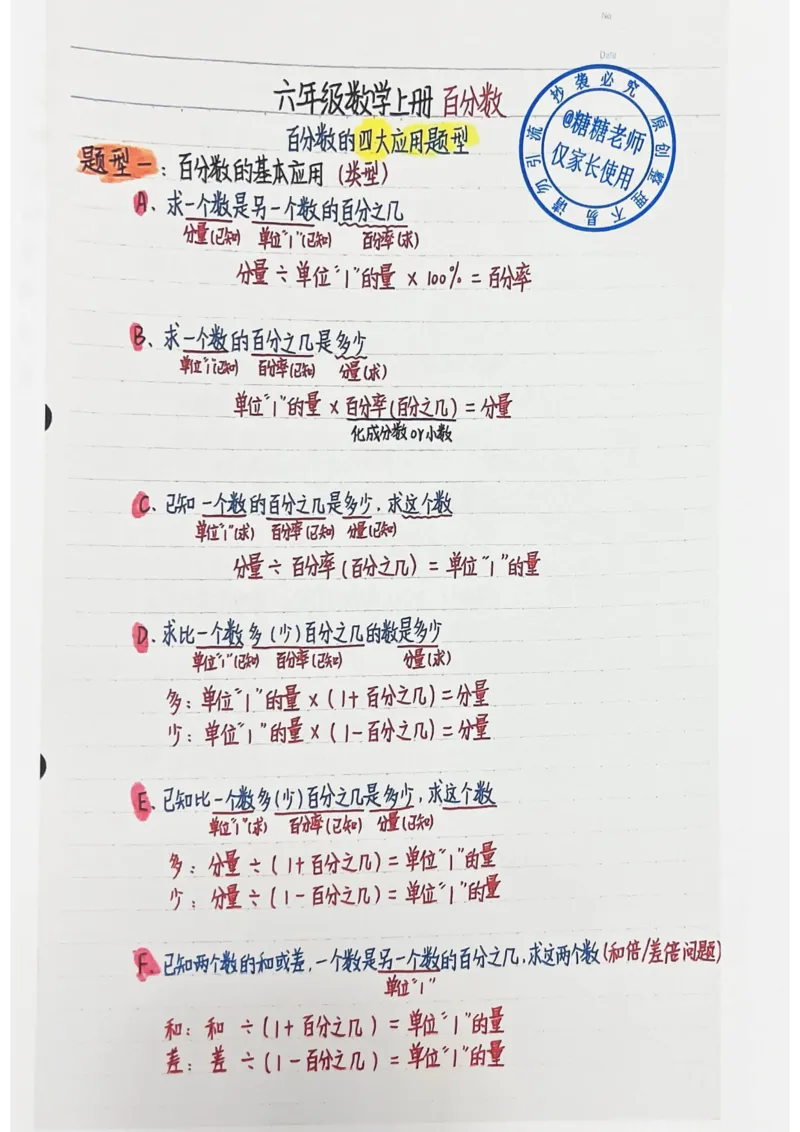 No
Date
六年级数学上册 百分数
百分数的四大应用题型
抄袭必究 原创整理不易 请勿引流
@糖糖老师
仅家长使用
题型一:百分数的基本应用(类型)
A、求一个数是另一个数的百分之几
分量(已知) 单位"1"(已知) 百分率(求)
分量÷单位"1"的量×100%=百分率
B、求一个数的百分之几是多少
单位"1"(已知) 百分率(已知) 分量(求)
单位"1"的量×百分率(百分之几)=分量
化成分数or小数
C、已知一个数的百分之几是多少,求这个数
单位"1"(求) 百分率(已知) 分量(已知)
分量÷百分率(百分之几)=单位"1"的量
D、求比一个数多(少)百分之几的数是多少
单位"1"(已知) 百分率(已知) 分量(求)
多:单位"1"的量×(1+百分之几)=分量
少:单位"1"的量×(1-百分之几)=分量
E、已知比一个数多(少)百分之几是多少,求这个数
单位"1"(求) 百分率(已知) 分量(已知)
多:分量÷(1+百分之几)=单位"1"的量
少:分量÷(1-百分之几)=单位"1"的量
F、已知两个数的和或差,一个数是另一个数的百分之几,求这两个数(和倍/差倍问题)
单位"1"
和:和÷(1+百分之几)=单位"1"的量
差:差÷(1-百分之几)=单位"1"的量